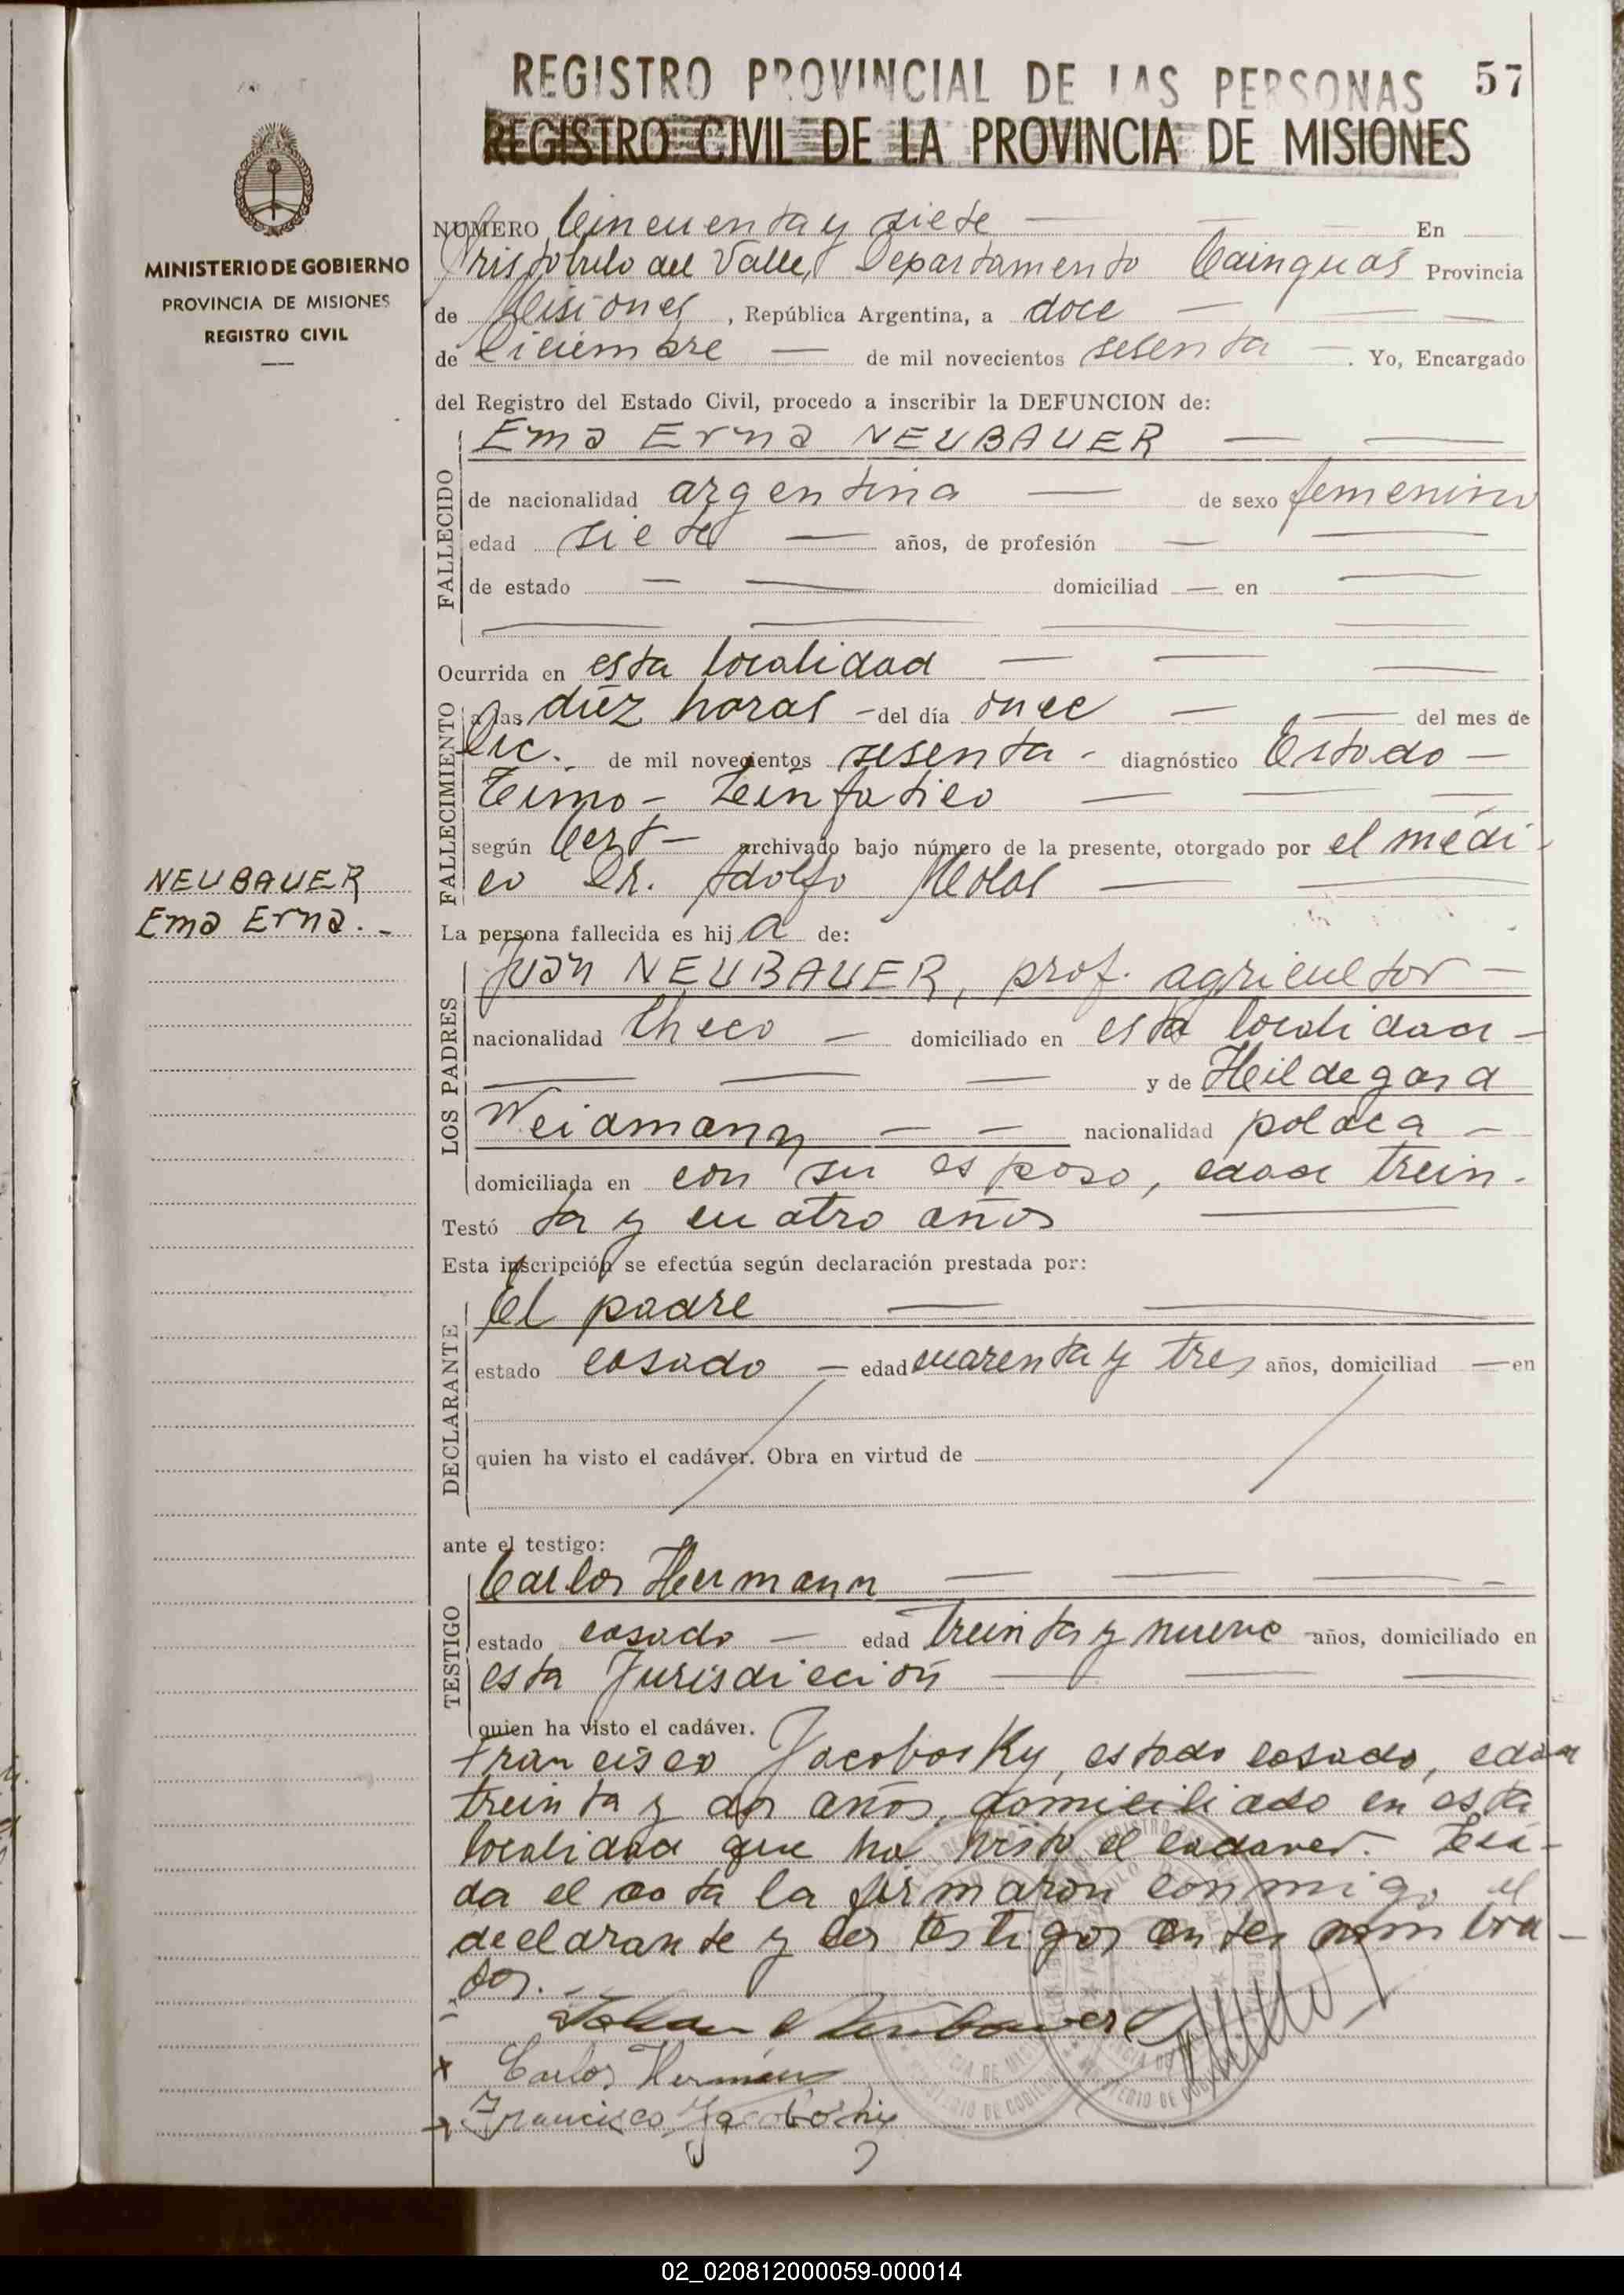 REGISTRO PROVINCIAL DE LAS PERSONAS 57
REGISTRO CIVIL DE LA PROVINCIA DE MISIONES
MINISTERIO DE GOBIERNO
PROVINCIA DE MISIONES
REGISTRO CIVIL
NUMERO Cincuenta y siete — — En
Aristobulo del Valle, Departamento Cainguas Provincia
de Misiones, República Argentina, a doce — — —
de Diciembre — de mil novecientos sesenta —. Yo, Encargado
del Registro del Estado Civil, procedo a inscribir la DEFUNCION de:
FALLECIDO
Ema Erna NEUBAUER — —
de nacionalidad argentina — de sexo femenino
edad siete — años, de profesión — —
de estado — — domiciliad — en —
— — — —
FALLECIMIENTO
Ocurrida en esta localidad — — —
a las diéz horas - del día once — — del mes de
Dic. de mil novecientos sesenta - diagnóstico Estado —
Timo - Linfatico — — —
según Cert — archivado bajo número de la presente, otorgado por el médi-
co Dr. Adolfo Molas — —
NEUBAUER
Ema Erna. -
La persona fallecida es hija de:
LOS PADRES
Juan NEUBAUER, prof. agricultor —
nacionalidad Checo — domiciliado en esta localidad -
— — — y de Hildegard
Weidmann — — nacionalidad polaca -
domiciliada en con su esposo, edad trein.
Testó ta y cuatro años —
Esta inscripción se efectúa según declaración prestada por:
DECLARANTE
El padre — —
estado casado — edad cuarenta y tres años, domiciliad — en
quien ha visto el cadáver. Obra en virtud de
ante el testigo:
TESTIGO
Carlos Hermann — — — -
estado casado — edad treinta y nueve años, domiciliado en
esta Jurisdicción — — —
quien ha visto el cadáver.
Francisco Jacobosky, estado casado, edad
treinta y dos años, domiciliado en esta
localidad que ha visto el cadaver. Leí-
da el acta la firmaron conmigo el
declarante y los testigos antes nombra-
dos.
Johann Neubauer
x Carlos Hermann
x Francisco Jacobosky
02_020812000059-000014